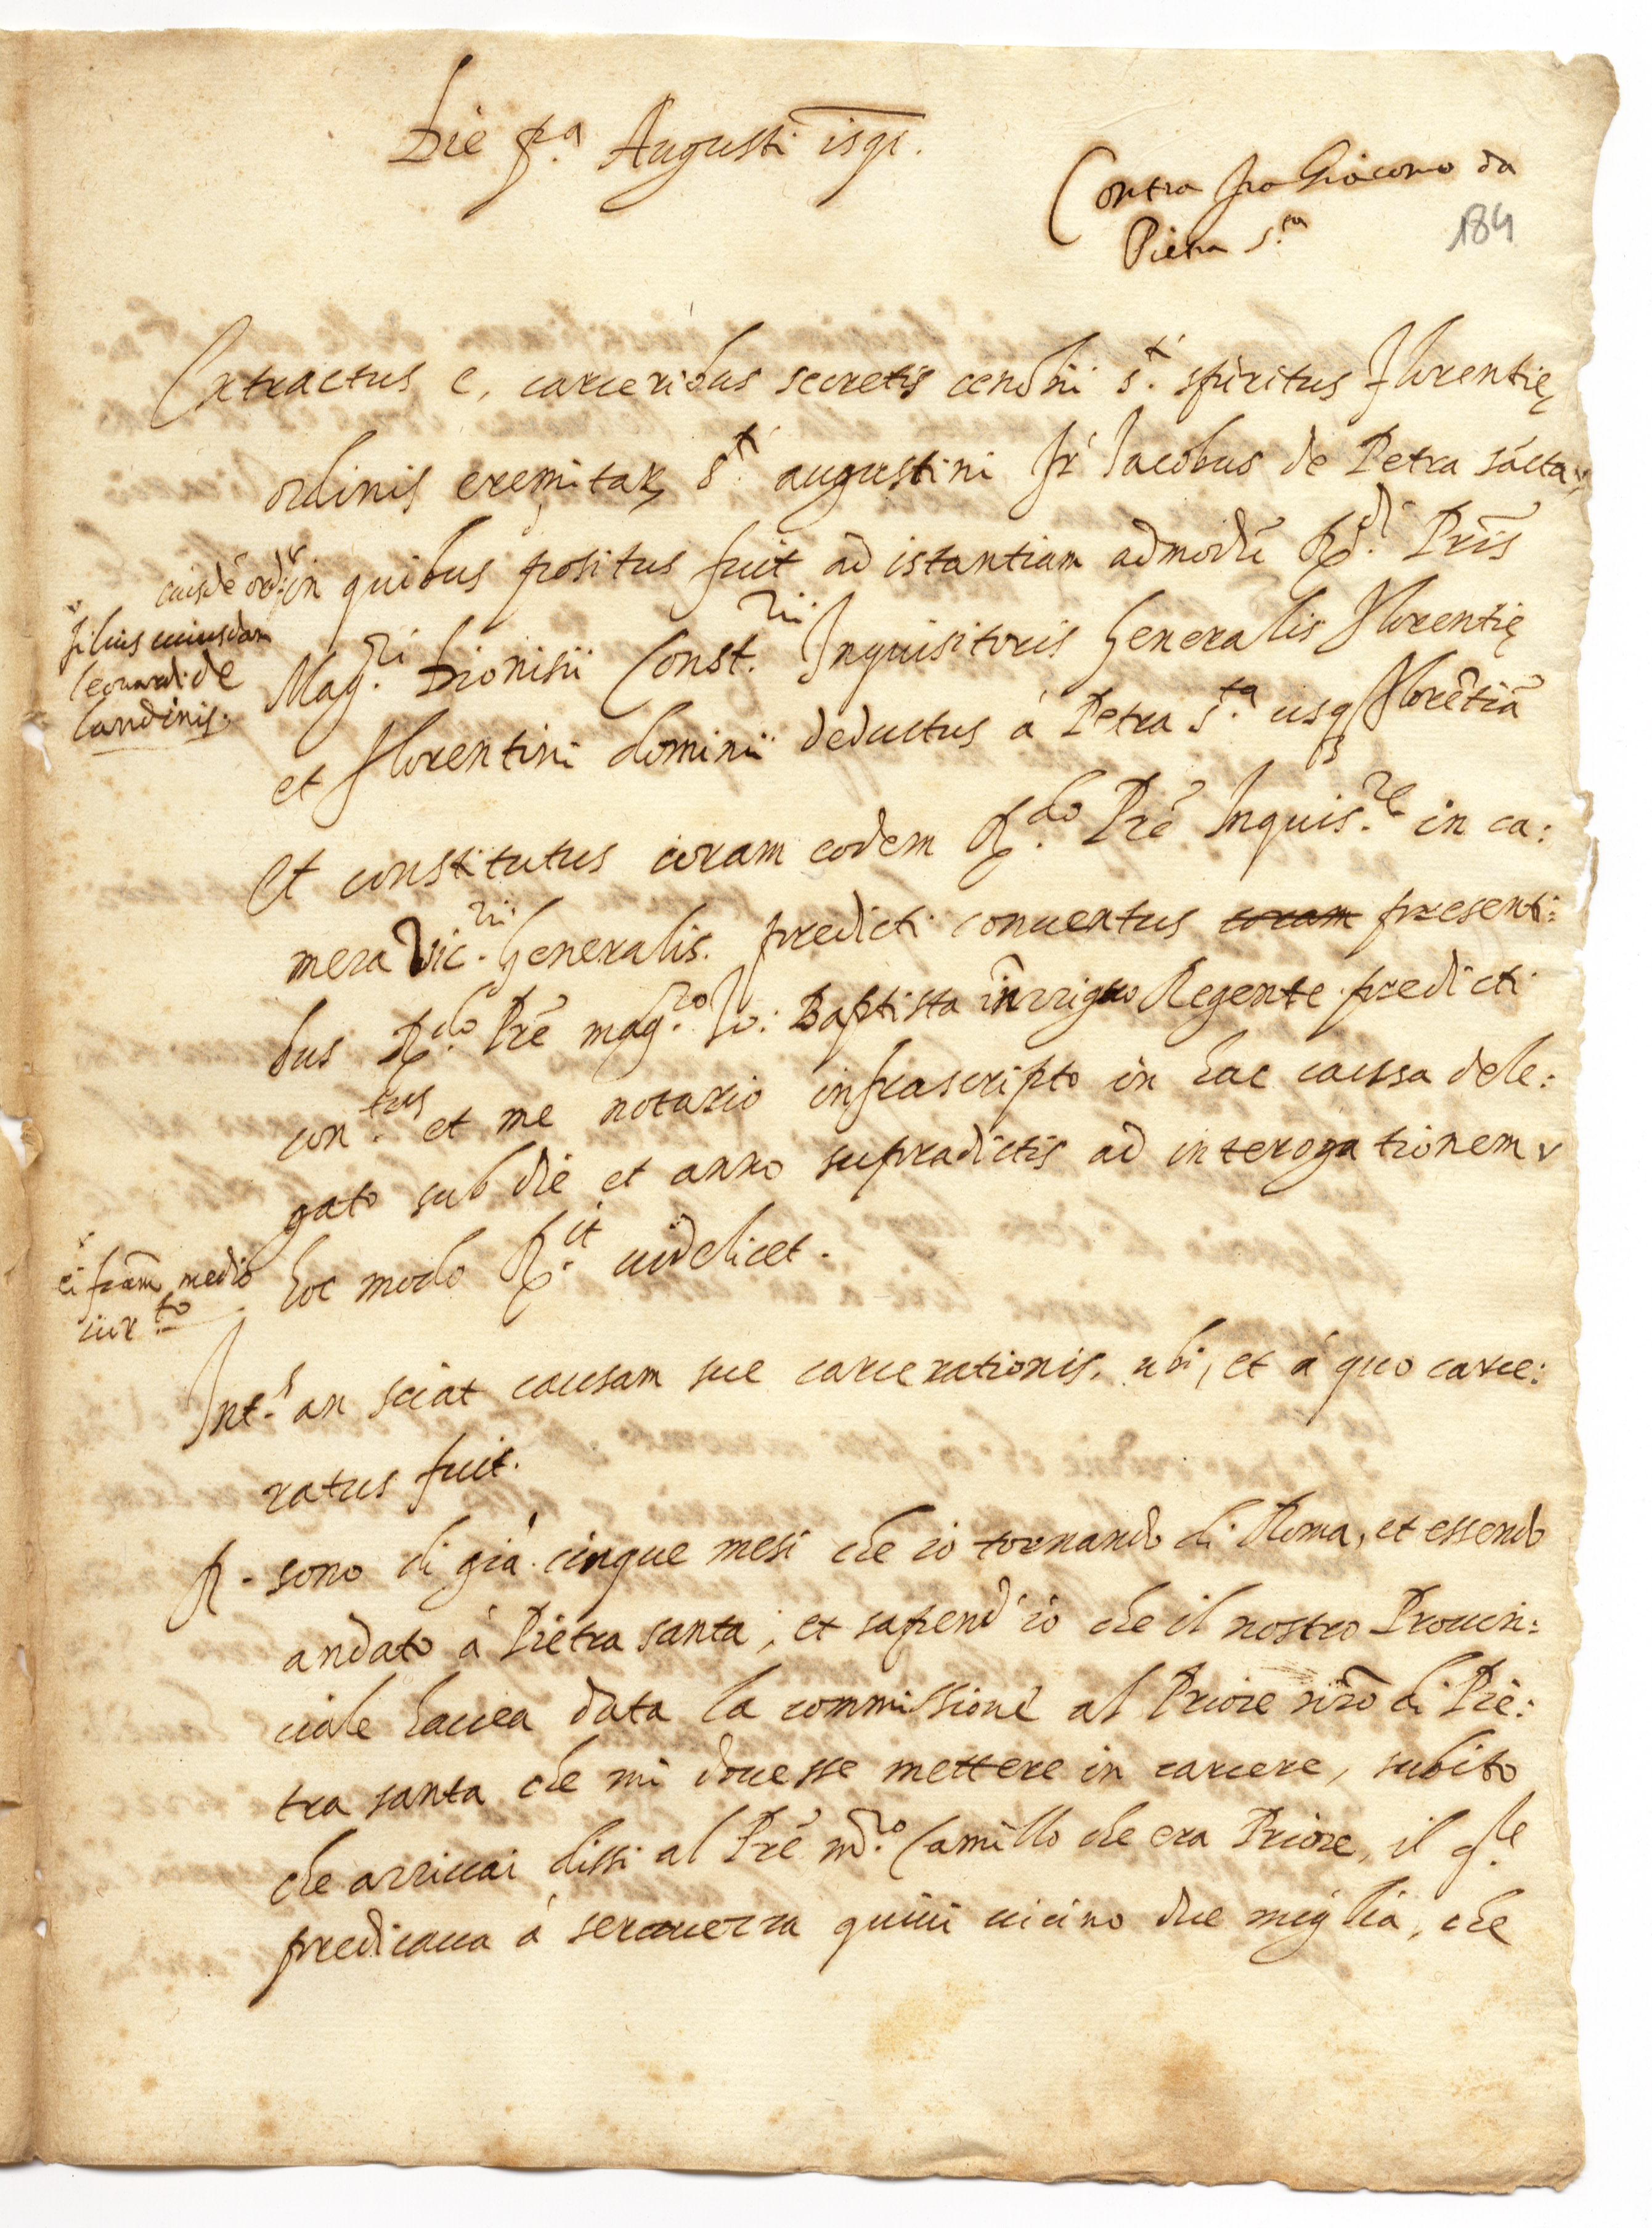 Die p.a Augusti 1591.
Contra fra Giacomo da
Pietra S.ta
184
Extractus e, carceribus secretis cenobii S.ti spiritus Florentię
ordinis eremitar S.ti augustini fr Iacobus de Petra sācta
cuisdē ord.s in quibus positus fuit ad istantiam admodū R.di Pris
filius cuiusdam
leonardi de
landinis.
Mag.ri Dionisii Const.rii Inquisitoris Generalis Florentię
et florentini dominii deductus á Petra S.ta usq Florētiā
Et constitutus coram eodem R.do Prē Inquis.re in ca:
mera Vic.rii Generalis. predicti conuentus coram presenti:
bus R.do Prē mag.ro Io: Baptista Regente predicti
con.tus et me notario infrascripto in hac caussa dele:
gato sub die et anno supradictis ad interogationem
ei fcām medio
iur.to
hoc modo R.it uidelicet.
Int.s an sciat causam sue carcerationis, ubi, et á quo carce:
ratus fuit.
R. sono di giá cinque mesi che io tornando di Roma, et essendo
andato á Pietra santa, et sapend'io che il nostro Prouin:
ciale hauea data la commissione al Priore nrō di Pie:
tra santa che mi douesse mettere in carcere, subito
che arriuai dissi al Prē m.ro Camillo che era Priore, il q.le
predicaua á serauezza quiui uicino due miglia, che